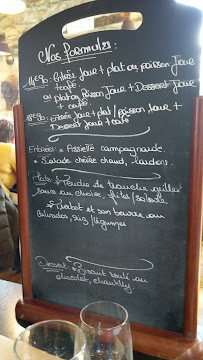 Nos formules:
14€90: Entrée Jour + plat ou poisson Jour
+ café
ou plat ou Poisson Jour + Dessert Jour
+ café.
18€90: Entrée Jour + plat / poisson Jour +
Dessert Jour + café
Entrées: * Assiette campagnarde.
* Salade chèvre chaud, lardons.
Plats: * de tranche grillée
sauce au choix, frites / salade
* et son beurre au
riz / légumes
Dessert: * roulé au
chocolat, chantilly.